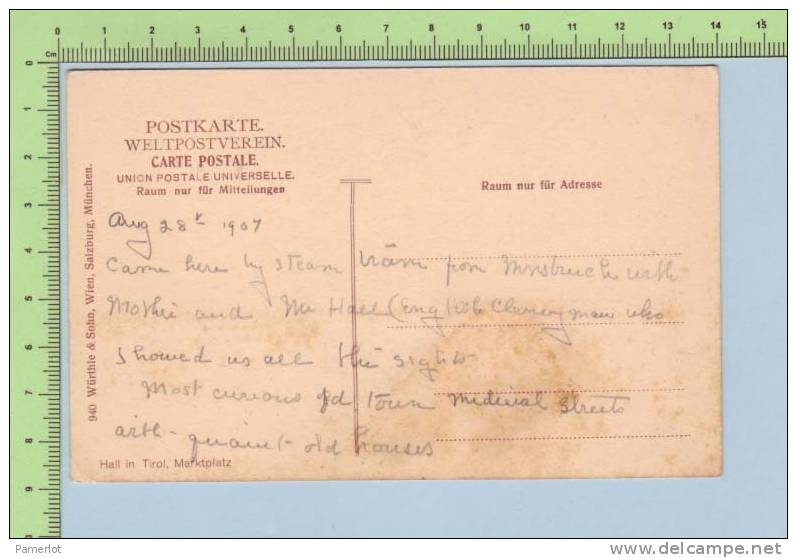 POSTKARTE.
WELTPOSTVEREIN.
CARTE POSTALE.
UNION POSTALE UNIVERSELLE.
Raum nur für Mitteilungen
Raum nur für Adresse
Aug 28th 1907
Came here by steam tram from Innsbruck with
Mother and Mr Hall (English Clergyman who
showed us all the sights
Most curious old town medieval streets
with quaint old houses
940 Würthle & Sohn, Wien, Salzburg, München.
Hall in Tirol, Marktplatz
Cm 0 1 2 3 4 5 6 7 8 9 10 11 12 13 14 15
0 1 2 3 4 5 6 7 8 9
Pamerlot
http://www.delcampe.net